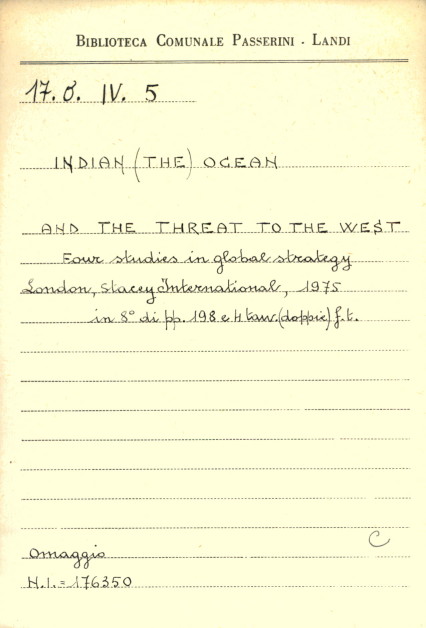 BIBLIOTECA COMUNALE PASSERINI - LANDI
17. O. IV. 5
INDIAN (THE) OCEAN
AND THE THREAT TO THE WEST
Four studies in global strategy
London, Stacey International, 1975
in 8° di pp. 198 e 4 tavv. (doppie) f.t.
C
Omaggio
N.I. = 176350